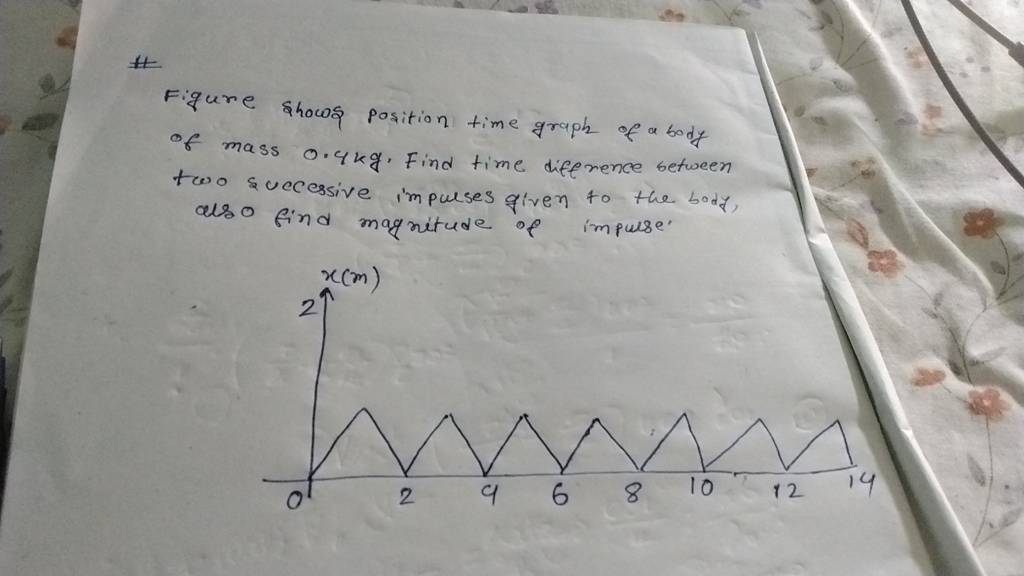 #
Figure shows position time graph of a body
of mass 0.4kg. Find time difference between
two successive impulses given to the body,
also find magnitude of impulse.
x(m)
2
0 2 4 6 8 10 12 14